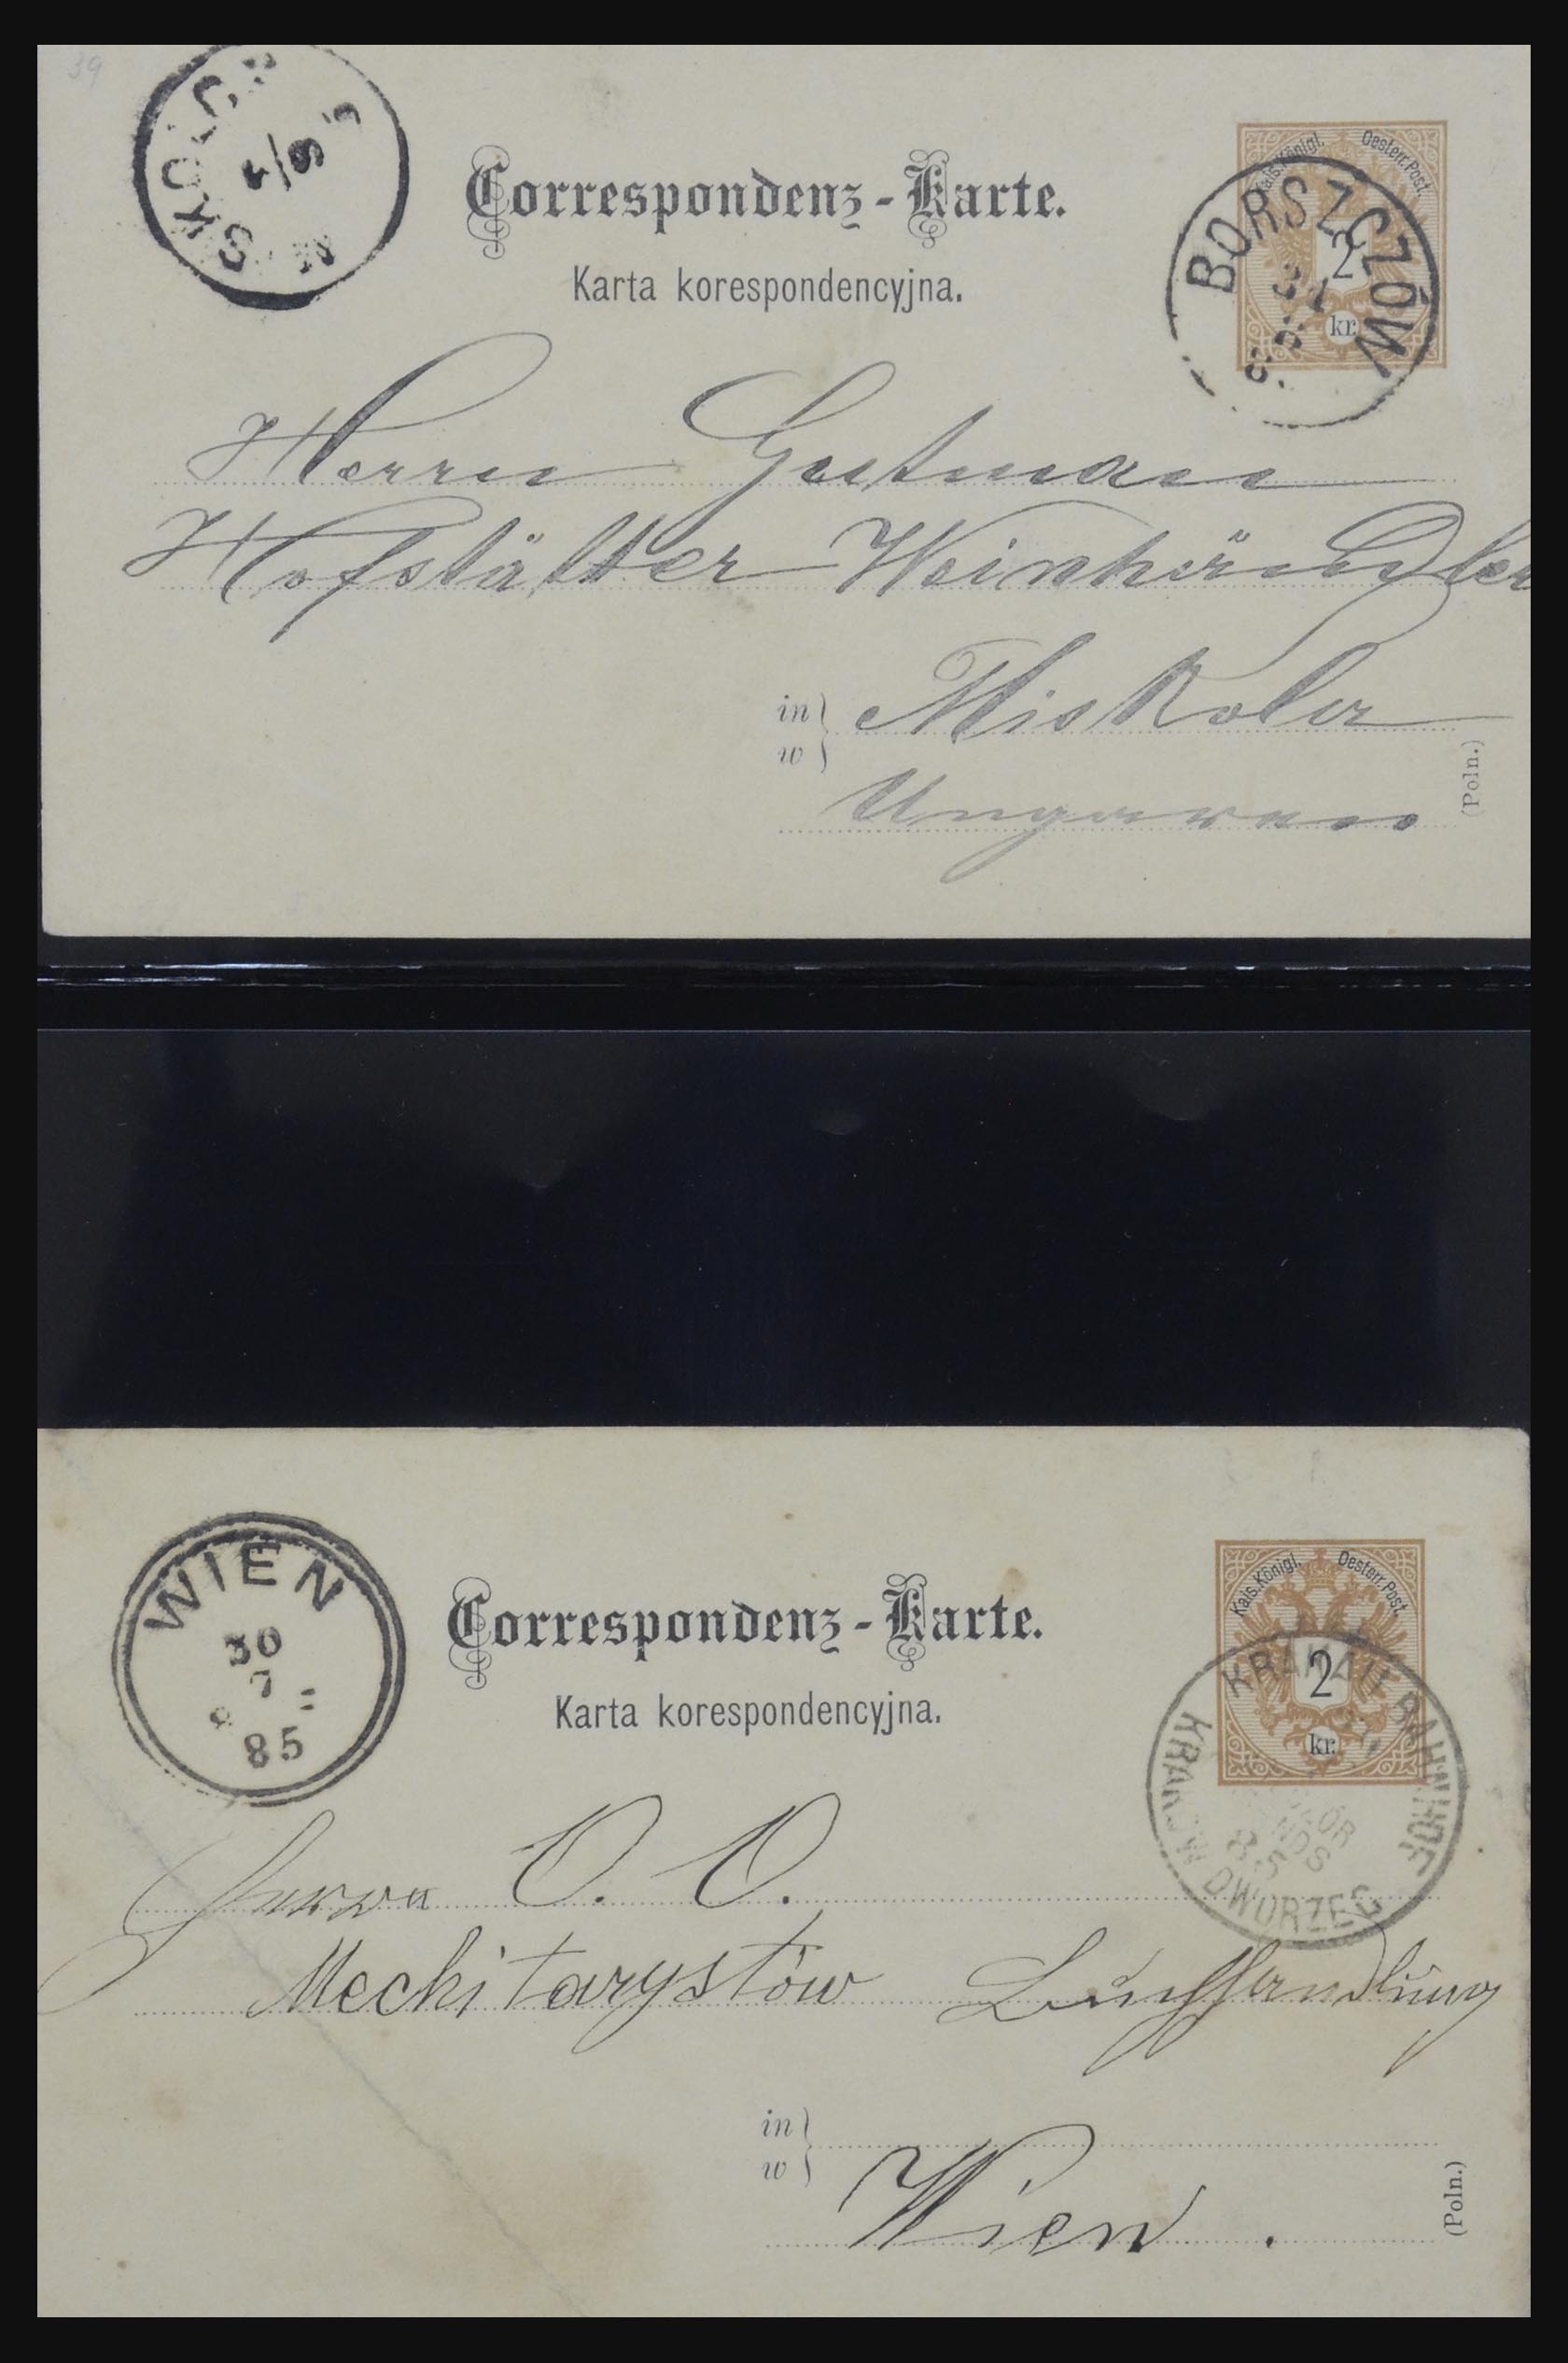 39
Correspondenz-Karte.
Karta korespondencyjna.
Kais. Königl. Oesterr. Post.
2
kr.
BORSZCZÓW
Herrn Gutman
Hofstätter Weinhändler
in
w
Miskolcz
Ungarn
(Poln.)
WIEN
30
7
85
Correspondenz-Karte.
Karta korespondencyjna.
Kais. Königl. Oesterr. Post.
2
kr.
KRAKAU BAHNHOF
KRAKÓW DWORZEC
Herrn O. O.
Mechitarystów Buchhandlung
in
w
Wien.
(Poln.)